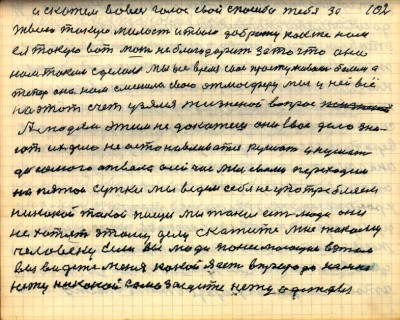 и скажем во весь голос свой спасибо тебя за 102
твою такую милость и твою доброту какие нам
ея такую вот мать не благодарить за то что она
нам такая сделала мы все время свое простуживали болели а
теперь она нам сменила свою атмосферу мы у ней всё
на этот счет узяли жизненой вопрос
А людям этим не докажеш они свое дело зна-
ют их дело не останавливатся кушать и кушать
до самого отвала а сейчас мы своим переходим
на пятое сутки мы ведем себя не употребляем
никакой такой пищи мы такие есть люди они
не хотят этому делу скажите мне такому
человеку если вы люди понемающие взялись
вы видете меня какой я есть в природе нам
нету никакой самозащите нету одежды